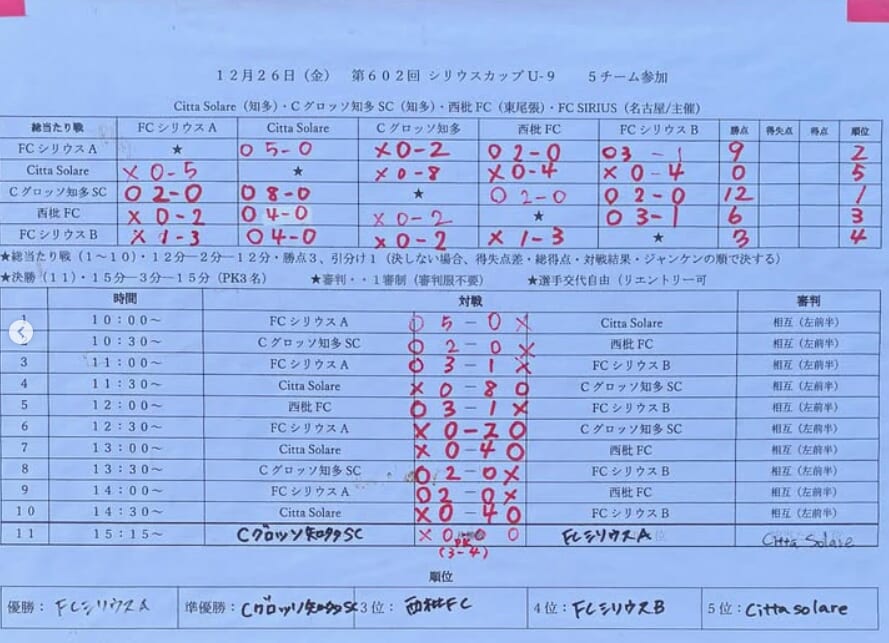 12月26日（金） 第602回 シリウスカップU-9 5チーム参加
Citta Solare（知多）・Cグロッソ知多SC（知多）・西枇FC（東尾張）・FC SIRIUS（名古屋/主催）
総当たり戦 FCシリウスA Citta Solare Cグロッソ知多 西枇FC FCシリウスB 勝点 得失点 得点 順位
FCシリウスA ★ O 5-0 X 0-2 O 2-0 O 3-1 9 2
Citta Solare X 0-5 ★ X 0-8 X 0-4 X 0-4 0 5
Cグロッソ知多SC O 2-0 O 8-0 ★ O 2-0 O 2-0 12 1
西枇FC X 0-2 O 4-0 X 0-2 ★ O 3-1 6 3
FCシリウスB X 1-3 O 4-0 X 0-2 X 1-3 ★ 3 4
★総当たり戦（1～10）・12分―2分―12分・勝点3、引分け1（決しない場合、得失点差・総得点・対戦結果・ジャンケンの順で決する）
★決勝（11）・15分―3分―15分（PK3名） ★審判・・1審制（審判服不要） ★選手交代自由（リエントリー可
時間 対戦 審判
1 10：00～ FCシリウスA O 5-0 X Citta Solare 相互（左前半）
2 10：30～ Cグロッソ知多SC O 2-0 X 西枇FC 相互（左前半）
3 11：00～ FCシリウスA O 3-1 X FCシリウスB 相互（左前半）
4 11：30～ Citta Solare X 0-8 O Cグロッソ知多SC 相互（左前半）
5 12：00～ 西枇FC O 3-1 X FCシリウスB 相互（左前半）
6 12：30～ FCシリウスA X 0-2 O Cグロッソ知多SC 相互（左前半）
7 13：00～ Citta Solare X 0-4 O 西枇FC 相互（左前半）
8 13：30～ Cグロッソ知多SC O 2-0 X FCシリウスB 相互（左前半）
9 14：00～ FCシリウスA O 2-0 X 西枇FC 相互（左前半）
10 14：30～ Citta Solare X 0-4 O FCシリウスB 相互（左前半）
11 15：15～ Cグロッソ知多SC X 0 0 O FCシリウスA Citta Solare
PK
(3-4)
順位
優勝：FCシリウスA 準優勝：Cグロッソ知多SC 3位：西枇FC 4位：FCシリウスB 5位：Citta solare